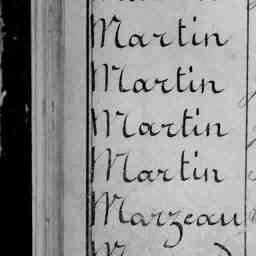 Martin
Martin
Martin
Martin
Marzeau